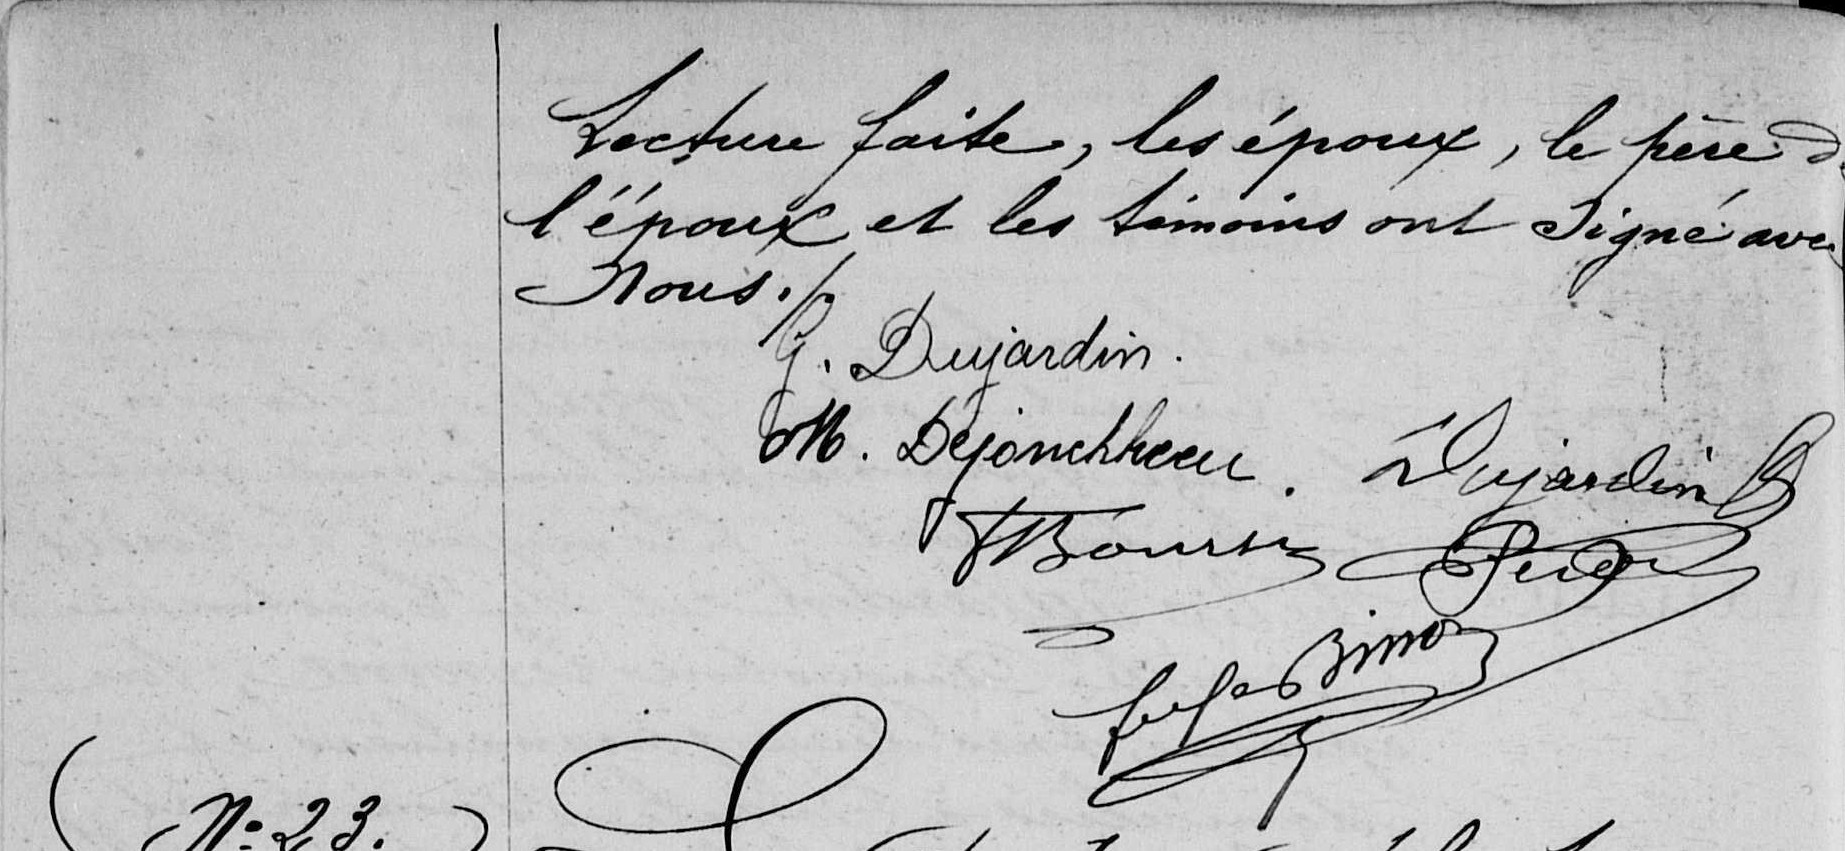 Lecture faite, les époux, le père d
l'époux et les témoins ont signé avec
Nous ./.
G. Dujardin.
M. Dejonckheere. Dujardin
Simon
N: 23.